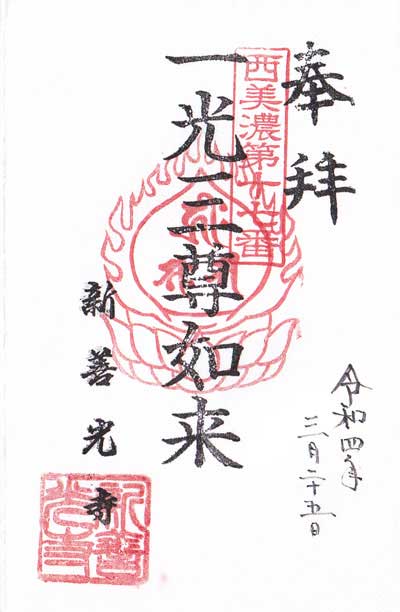 奉拝
西美濃第十七番
一光三尊如来
新善光寺
令和四年
三月二十五日
新善光寺